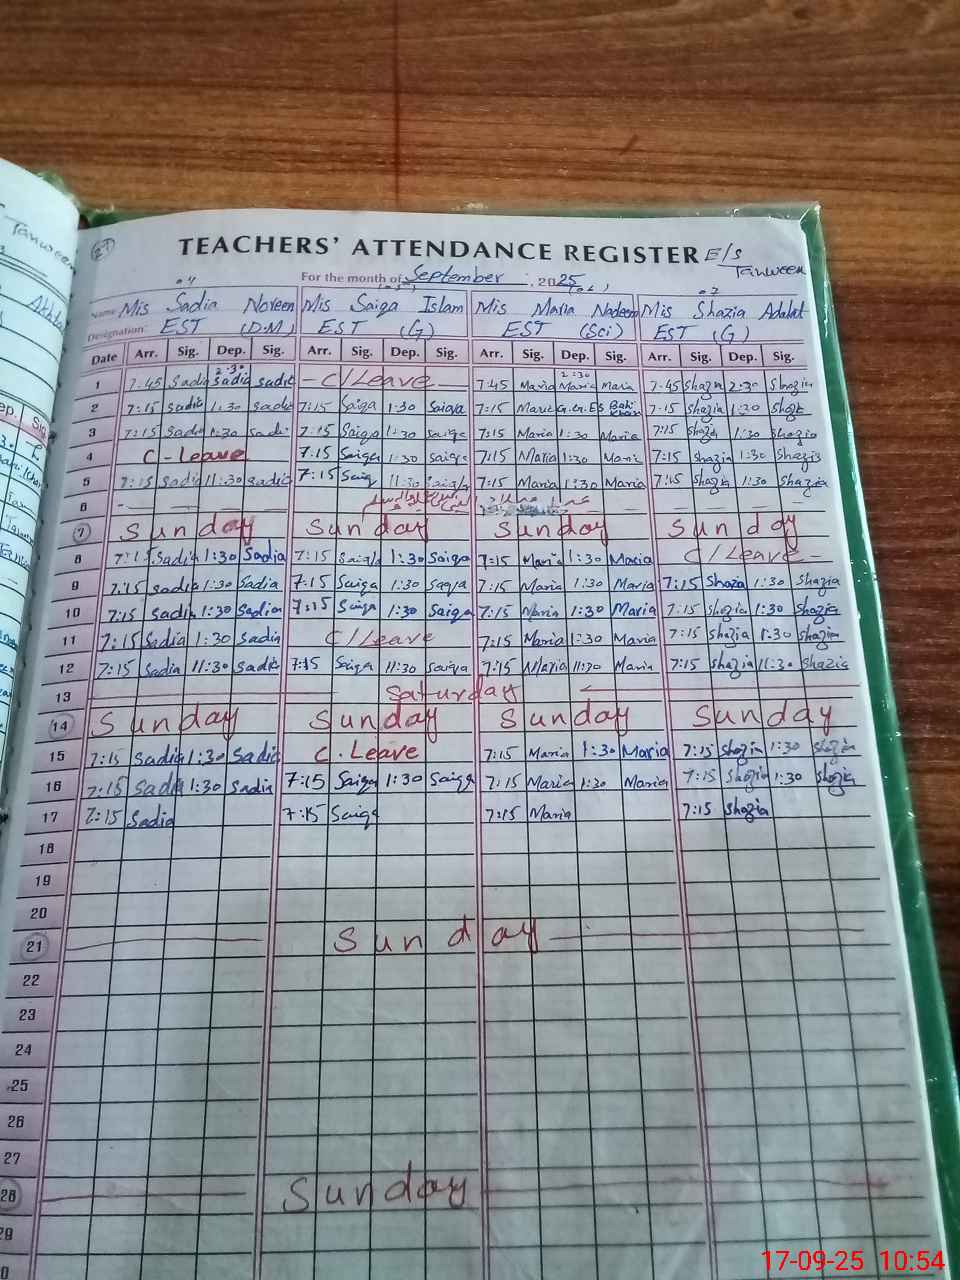 TEACHERS' ATTENDANCE REGISTER E/S Tanween
For the month of September, 2025
Name: Mis Sadia Noreen Mis Saiqa Islam Mis Maria Nadeem Mis Shazia Adalat
Designation: EST (D.M) EST (G) EST (Sci) EST (G)
Date Arr. Sig. Dep. Sig. Arr. Sig. Dep. Sig. Arr. Sig. Dep. Sig. Arr. Sig. Dep. Sig.
1 7:45 Sadia 2:30 Sadia Sadia C/Leave 7:45 Maria 2:30 Maria Maria 7:45 Shazia 2:30 Shazia
2 7:15 Sadia 1:30 Sadia 7:15 Saiqa 1:30 Saiqa 7:15 Maria 7:15 Shazia 1:30 Shazia
3 7:15 Sadia 1:30 Sadia 7:15 Saiqa 1:30 Saiqa 7:15 Maria 1:30 Maria 7:15 Shazia 1:30 Shazia
4 C-Leave 7:15 Saiqa 1:30 Saiqa 7:15 Maria 1:30 Maria 7:15 Shazia 1:30 Shazia
5 7:15 Sadia 11:30 Sadia 7:15 Saiq 11:30 Saiqa 7:15 Maria 1:30 Maria 7:15 Shazia 1:30 Shazia
6
7 Sunday Sunday Sunday Sunday
8 7:15 Sadia 1:30 Sadia 7:15 Saiqa 1:30 Saiqa 7:15 Maria 1:30 Maria C/Leave
9 7:15 Sadia 1:30 Sadia 7:15 Saiqa 1:30 Saqia 7:15 Maria 1:30 Maria 7:15 Shazia 1:30 Shazia
10 7:15 Sadia 1:30 Sadia 7:15 Saiqa 1:30 Saiqa 7:15 Maria 1:30 Maria 7:15 Shazia 1:30 Shazia
11 7:15 Sadia 1:30 Sadia C/Leave 7:15 Maria 1:30 Maria 7:15 Shazia 1:30 Shazia
12 7:15 Sadia 11:30 Sadia 7:15 Saiqa 11:30 Saiqa 7:15 Maria 11:30 Maria 7:15 Shazia 11:30 Shazia
13 Saturday
14 Sunday Sunday Sunday Sunday
15 7:15 Sadia 1:30 Sadia C.Leave 7:15 Maria 1:30 Maria 7:15 Shazia 1:30 Shazia
16 7:15 Sadia 1:30 Sadia 7:15 Saiqa 1:30 Saiqa 7:15 Maria 1:30 Maria 7:15 Shazia 1:30 Shazia
17 7:15 Sadia 7:15 Saiqa 7:15 Maria 7:15 Shazia
18
19
20
21 Sunday
22
23
24
25
26
27
28 Sunday
29
17-09-25 10:54